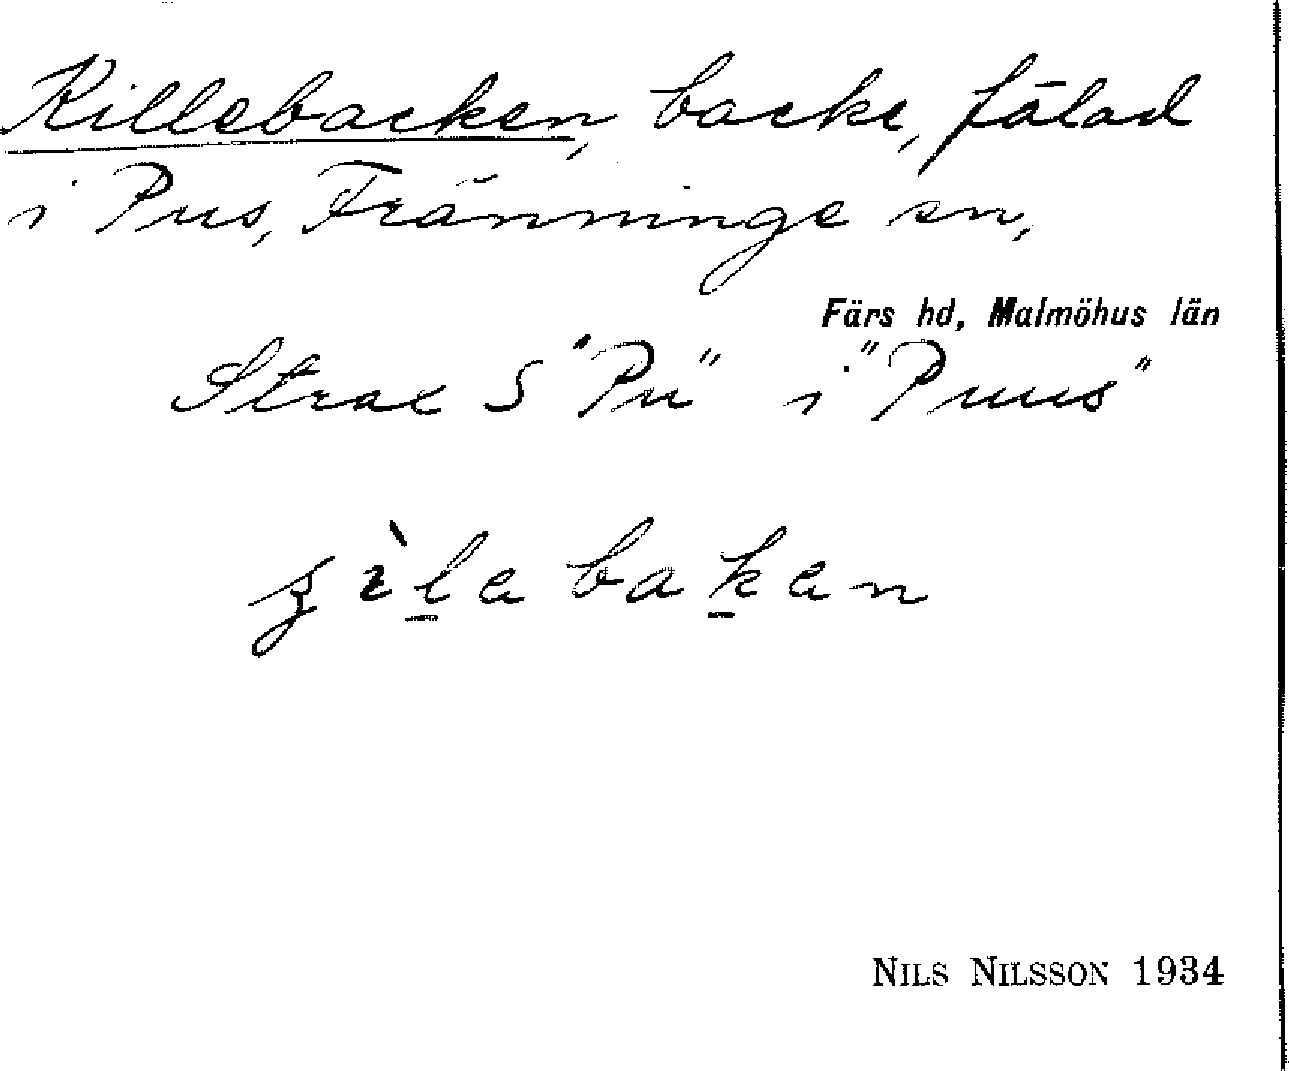 Killebacken, backe, fälad
i Pus, Fränninge sn,
Färs hd, Malmöhus län
Strax S "Pu" i "Puus"
ʂìlebaken
NILS NILSSON 1934